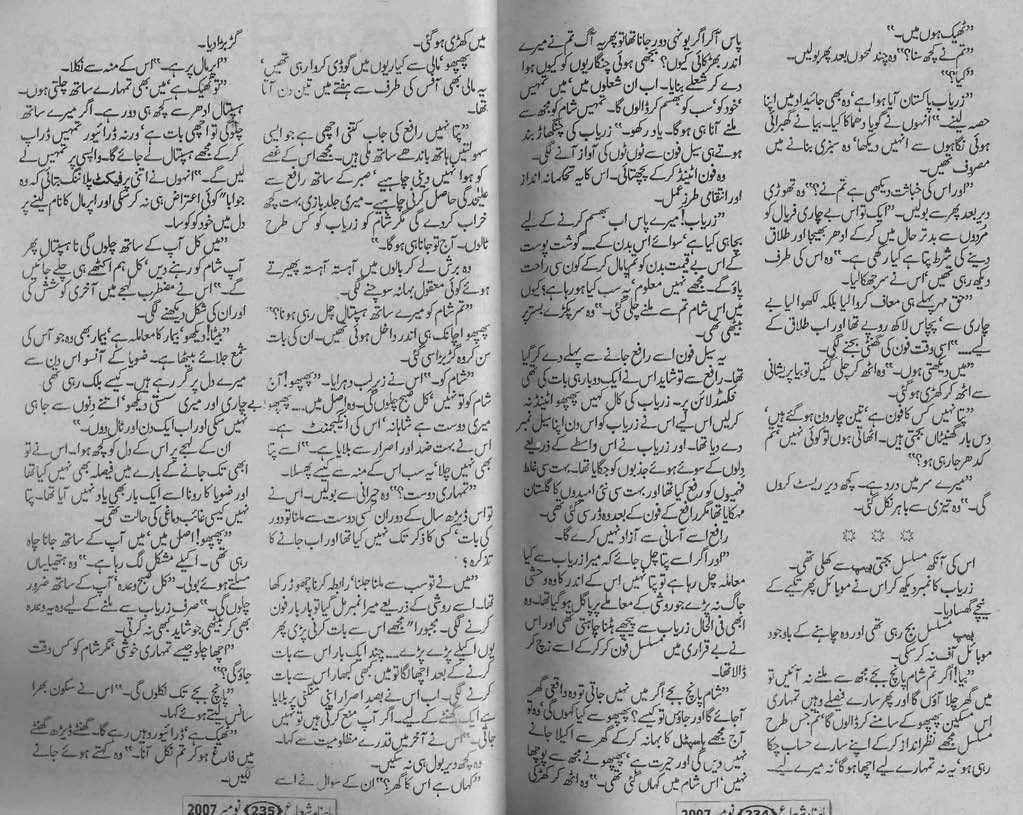 ”ٹھیک ہوں میں۔“
”تم نے کچھ سنا؟“ وہ چند لمحوں بعد پھر بولیں۔
”کیا؟“
”زریاب پاکستان آیا ہوا ہے‘ وہ بھی جائیداد میں اپنا
حصہ لینے۔“ انہوں نے گویا دھماکا کیا۔ بیا نے گھبرائی
ہوئی نگاہوں سے انہیں دیکھا‘ وہ سبزی بنانے میں
مصروف تھیں۔
”اور اس کی خباثت دیکھی ہے تم نے؟“ وہ تھوڑی
دیر بعد پھر سے بولیں۔ ”ایک تو اس بے چاری فریال کو
مُردوں سے بدتر حال میں کر کے ادھر بھیجا اور طلاق
دینے کی شرط پتا ہے کیا رکھی ہے۔“ وہ اس کی طرف
دیکھ رہی تھیں‘ اس نے سر جھکا لیا۔
”حق مہر پہلے ہی معاف کروا لیا بلکہ لکھوا لیا بے
چاری سے‘ پچاس لاکھ روپے تھا اور اب طلاق کے
لیے....“ اسی وقت فون کی گھنٹی بجنے لگی۔
”میں دیکھتی ہوں۔“ وہ اٹھ کر چلی گئیں تو بیا پریشانی
سے اٹھ کر کھڑی ہو گئی۔
”پتا نہیں کس کا فون ہے‘ تین چار دن ہو گئے ہیں‘
دس بار گھنٹیاں بجتی ہیں۔ اٹھاتی ہوں تو کوئی نہیں‘ تم
کدھر جا رہی ہو؟“
”میرے سر میں درد ہے۔ کچھ دیر ریسٹ کروں
گی۔“ وہ تیزی سے باہر نکل گئی۔
اس کی آنکھ مسلسل بجتی بیپ سے کھلی تھی۔
زریاب کا نمبر دیکھ کر اس نے موبائل پھر تکیے کے
نیچے گھسا دیا۔
بیپ مسلسل بج رہی تھی اور وہ چاہنے کے باوجود
موبائل آف نہ کر سکی۔
”بیا! اگر تم شام پانچ بجے مجھ سے ملنے نہ آئیں تو
میں گھر چلا آؤں گا اور پھر سارے فیصلے وہیں تمہاری
اس مسکین پھپھو کے سامنے کر ڈالوں گا‘ تم جس طرح
مسلسل مجھے نظر انداز کر کے اپنے سارے حساب چکا
رہی ہو‘ یہ نہ تمہارے لیے اچھا ہوگا‘ نہ میرے لیے۔
پاس آ کر اگر یونہی دور جانا تھا تو پھر یہ آگ تم نے میرے
اندر بھڑکائی کیوں؟ بجھی ہوئی چنگاریوں کو کیوں ہوا
دے کر شعلے بنایا۔ اب ان شعلوں میں‘ میں تمہیں
‘خود کو‘ سب کو بھسم کر ڈالوں گا۔ تمہیں شام کو مجھ سے
ملنے آنا ہی ہوگا۔ یاد رکھو۔“ زریاب کی چنگھاڑ بند
ہوتے ہی سیل فون سے ٹوں ٹوں کی آواز آنے لگی۔
وہ فون اٹینڈ کر کے پچھتائی۔ اس کا یہ تحکمانہ انداز
اور انتقامی طرز عمل۔
”زریاب! میرے پاس اب بھسم کرنے کے لیے
بچا ہی کیا ہے‘ سوائے اس بدن کے.... گوشت پوست
کے اس بے قیمت بدن کو تم پامال کر کے کون سی راحت
پاؤ گے۔ مجھے نہیں معلوم‘ یہ سب کیا ہو رہا ہے؟ کیوں
میں اس شام تم سے ملنے چلی گئی۔“ وہ سر پکڑے بستر پر
بیٹھی تھی۔
یہ سیل فون اسے رافع جانے سے پہلے دے کر گیا
تھا۔ رافع سے تو شاید اس نے ایک دو بار ہی بات کی تھی
فکسڈ لائن پر۔ زریاب کی کال کہیں پھپھو اٹینڈ نہ
کر لیں اس لیے اس نے زریاب کو اس دن اپنا سیل نمبر
دے دیا تھا۔ اور زریاب نے اس واسطے کے ذریعے
دلوں کے سوئے ہوئے جذبوں کو جگایا تھا۔ بہت سی غلط
فہمیوں کو رفع کیا تھا اور بہت سی نئی امیدوں کا گلستان
مہکایا تھا مگر رافع کے فون کے بعد وہ ڈر سی گئی تھی۔
رافع اسے آسانی سے آزاد نہیں کرے گا۔
”اور اگر اسے پتا چل جائے کہ میرا زریاب سے کیا
معاملہ چل رہا ہے تو پتا نہیں اس کے اندر کا وہ وحشی
جاگ نہ پڑے جو روشی کے معاملے پر پاگل ہو گیا تھا۔ وہ
ابھی فی الحال زریاب سے پیچھے ہٹنا چاہتی تھی اور اس
نے بے قراری میں مسلسل فون کر کر کے اسے زچ کر
ڈالا تھا۔
”شام پانچ بجے اگر میں نہیں جاتی تو وہ واقعی گھر
آ جائے گا اور جاؤں تو کیسے؟ پھپھو سے کیا کہوں گی‘ وہ تو
آج مجھے ہاسپٹل کا بہانہ کر کے گھر سے اکیلا جانے
نہیں دیں گی اور حیرت ہے‘ پھپھو نے مجھ سے پوچھا
نہیں‘ اس شام میں کہاں گئی تھی۔“ وہ اٹھ کر کھڑکی
234 نومبر 2007
میں کھڑی ہو گئی۔
پھپھو‘ مالی سے کیاریوں میں گوڈی کروا رہی تھیں‘
یہ مالی بھی آفس کی طرف سے ہفتے میں تین دن آتا
تھا۔
”پتا نہیں رافع کی جاب کتنی اچھی ہے جو ایسی
سہولتیں ہاتھ باندھے ساتھ ملی ہیں۔ مجھے اس کے غصے
کو ہوا نہیں دینی چاہیے‘ صبر کے ساتھ رافع سے
علیحدگی حاصل کرنی چاہیے۔ میری جلد بازی بہت کچھ
خراب کر دے گی مگر شام کو زریاب کو کس طرح
ٹالوں۔ آج تو جانا ہی ہوگا۔“
وہ برش لے کر بالوں میں آہستہ آہستہ پھیرتے
ہوئے کوئی معقول بہانہ سوچنے لگی۔
”تم شام کو میرے ساتھ ہسپتال چل رہی ہو نا؟“
پھپھو اچانک ہی اندر داخل ہوئی تھیں۔ ان کی بات
سن کر وہ گڑبڑا سی گئی۔
”شام کو۔“ اس نے زیر لب دہرایا۔ ”پھپھو! آج
شام کو تو نہیں‘ کل صبح چلوں گی۔ وہ اصل میں.... پھپھو!
میری دوست ہے شاہانہ‘ اس کی انگیجمنٹ ہے۔
اس نے بہت ضد اور اصرار سے بلایا ہے۔“ اسے پتا
بھی نہیں چلا‘ یہ سب اس کے منہ سے کیسے پھسلا۔
”تمہاری دوست؟“ وہ حیرانی سے بولیں۔ اس نے
تو اس ڈیڑھ سال کے دوران کسی دوست سے ملنا تو دور
کی بات‘ کسی کا ذکر تک نہیں کیا تھا اور اب جانے کا
تذکرہ؟
”میں نے تو سب سے ملنا جلنا‘ رابطہ کرنا چھوڑ رکھا
تھا۔ اسے روشی کے ذریعے میرا نمبر مل گیا تو بار بار فون
کرنے لگی۔ مجبوراً ”مجھے اس سے بات کرنی پڑی پھر
یوں اکیلے پڑے پڑے.... چند ایک بار اس سے بات
کرنے کے بعد اچھا لگا تو میں بھی کبھار اس سے بات
کرنے لگی۔ اب اس نے بعد اصرار اپنی منگنی پر بلایا
ہے ایک گھنٹے کے لیے۔ اگر آپ منع کرتی ہیں تو نہیں
جاتی۔“ اس نے آخر میں قدرے مظلومیت سے کہا۔
وہ کچھ دیر بول ہی نہ سکیں۔
”کہاں ہے اس کا گھر؟“ ان کے سوال نے اسے
گڑبڑا دیا۔
”ابر مال پر ہے۔“ اس کے منہ سے نکلا۔
”تو ٹھیک ہے‘ میں بھی تمہارے ساتھ چلتی ہوں۔
ہسپتال ادھر سے کچھ ہی دور ہے۔ اگر میرے ساتھ
چلو گی تو اچھی بات ہے‘ ورنہ ڈرائیور تمہیں ڈراپ
کر کے مجھے ہسپتال لے جائے گا۔ واپسی پر تمہیں لے
لیں گے۔“ انہوں نے اتنی پرفیکٹ پلاننگ بتائی کہ وہ
جواباً ”کوئی اعتراض ہی نہ کر سکی اور اپر مال کا نام لینے پر
دل میں خود کو کوسا۔
”میں کل آپ کے ساتھ چلوں گی نا ہسپتال پھر
آپ شام کو رہنے دیں‘ کل ہم اکٹھے ہی چلے جائیں
گے۔“ اس نے مضطرب لہجے میں آخری کوشش کی
اور ان کی شکل دیکھنے لگی۔
”بیٹا! دیکھو‘ بیمار کا معاملہ ہے‘ بیمار بھی وہ جو آس کی
شمع جلائے بیٹھا ہے۔ ضویا کے آنسو اس دن سے
میرے دل پر گر رہے ہیں۔ کیسے بلک رہی تھی
بے چاری اور میری سستی دیکھو‘ اتنے دنوں سے جا ہی
نہیں سکی اور اب ایک دن اور ٹال دوں۔“
ان کے لہجے پر اس کے دل کو کچھ ہوا۔ اس نے تو
ابھی تک جانے کے بارے میں فیصلہ بھی نہیں کیا تھا
اور ضویا کا رونا اسے ایک بار بھی یاد نہیں آیا تھا۔ پتا
نہیں کیسی غائب دماغی کی حالت تھی۔
”پھپھو! اصل میں‘ میں آپ کے ساتھ جانا چاہ
رہی تھی۔ اکیلے مشکل لگ رہا ہے۔“ وہ ہتھیلیاں
مسلتے ہوئے بولی۔ ”کل صبح وعدہ‘ آپ کے ساتھ ضرور
چلوں گی۔“ صرف زریاب سے ملنے کے لیے وہ یہ وعدہ
بھی کر بیٹھی جو شاید کبھی نہ کرتی۔
”اچھا چلو جیسے تمہاری خوشی‘ مگر شام کو کس وقت
جاؤ گی؟“
”پانچ بجے تک نکلوں گی۔“ اس نے سکون بھرا
سانس لیتے ہوئے کہا۔
”ٹھیک ہے‘ ڈرائیور وہیں رہے گا۔ گھنٹے ڈیڑھ گھنٹے
میں فارغ ہو کر تم نکل آنا۔“ وہ کہتے ہوئے جانے
لگیں۔
ماہنامہ شعاع 235 نومبر 2007